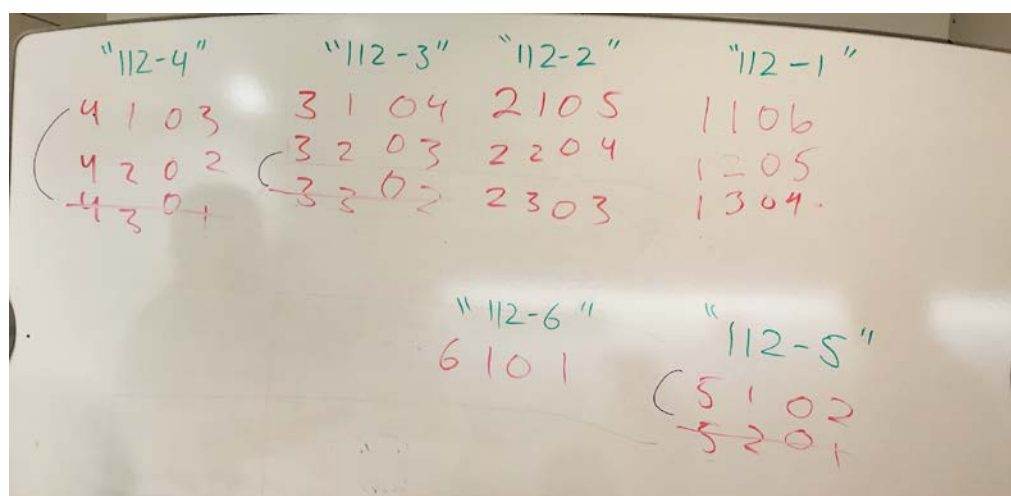 "112-4"
4103
4202
4301
"112-3"
3104
3203
3302
"112-2"
2105
2204
2303
"112-1"
1106
1205
1304.
"112-6"
6101
"112-5"
5102
5201